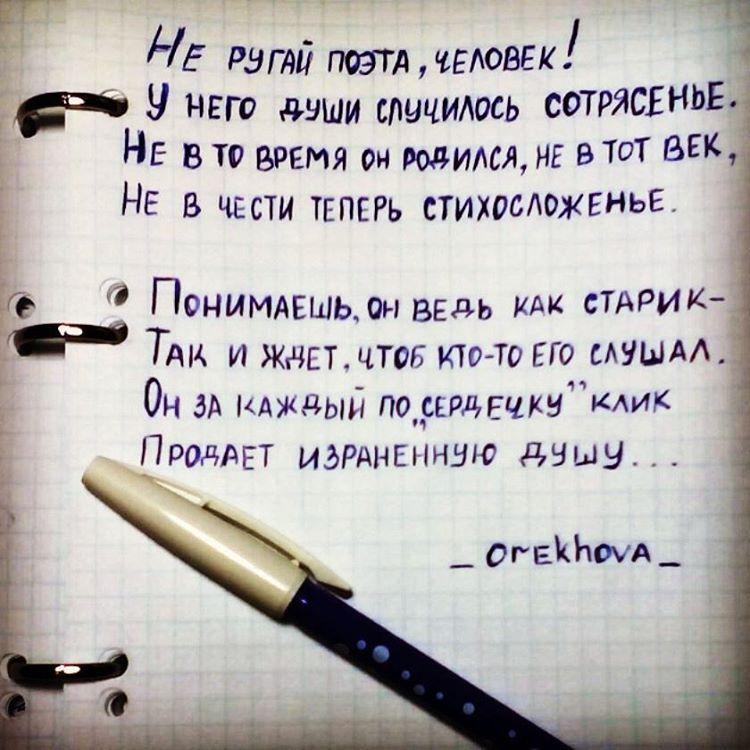 Не ругай поэта, человек!
У него души случилось сотрясенье.
Не в то время он родился, не в тот век,
Не в чести теперь стихосложенье.
Понимаешь, он ведь как старик-
Так и ждет, чтоб кто-то его слушал.
Он за каждый по „сердечку” клик
Продает израненную душу...
_ orekhova _